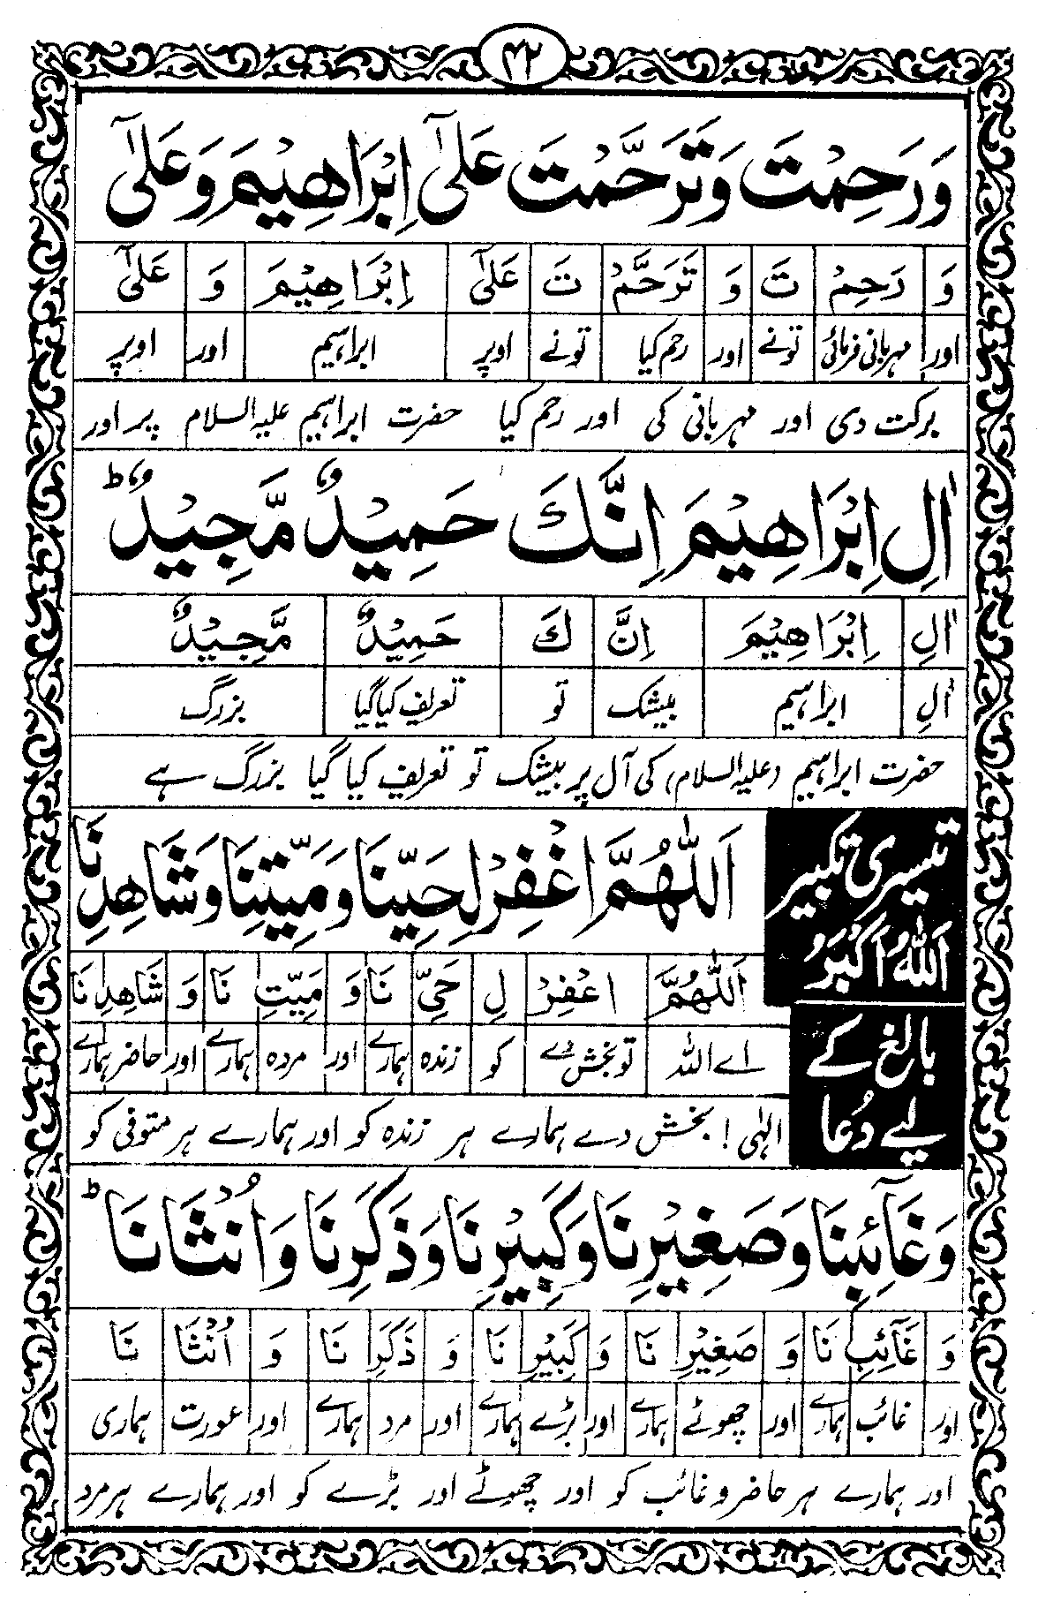 ۴۲
وَرَحِمْتَ وَتَرَحَّمْتَ عَلٰٓى اِبْرَاهِيْمَ وَعَلٰٓى
وَ رَحِمْ تَ وَ تَرَحَّمْ تَ عَلٰٓى اِبْرَاهِيْمَ وَ عَلٰٓى
اور مہربانی فرمائی تونے اور رحم کیا تونے اوپر ابراہیم اور اوپر
برکت دی اور مہربانی کی اور رحم کیا حضرت ابراہیم علیہ السلام پر اور
اٰلِ اِبْرَاهِيْمَ اِنَّكَ حَمِيْدٌ مَّجِيْدٌ ؕ
اٰلِ اِبْرَاهِيْمَ اِنَّ كَ حَمِيْدٌ مَّجِيْدٌ
اٰلِ ابراہیم بیشک تو تعریف کیا گیا بزرگ
حضرت ابراہیم (علیہ السلام) کی آل پر بیشک تو تعریف کیا گیا بزرگ ہے
تیسری تکبیر
اَللّٰهُ اَكْبَرُ
بالغ کے
لیے دُعا
اَللّٰهُمَّ اغْفِرْ لِحَيِّنَا وَمَيِّتِنَا وَشَاهِدِنَا
اَللّٰهُمَّ اغْفِرْ لِ حَيِّ نَا وَ مَيِّتِ نَا وَ شَاهِدِ نَا
اے اللہ تو بخش دے کو زندہ ہمارے اور مردہ ہمارے اور حاضر ہمارے
الٰہی ! بخش دے ہمارے ہر زندہ کو اور ہمارے ہر متوفی کو
وَغَآئِبِنَا وَصَغِيْرِنَا وَكَبِيْرِنَا وَذَكَرِنَا وَاُنْثَانَا ؕ
وَ غَآئِبِ نَا وَ صَغِيْرِ نَا وَ كَبِيْرِ نَا وَ ذَكَرِ نَا وَ اُنْثَا نَا
اور غائب ہمارے اور چھوٹے ہمارے اور بڑے ہمارے اور مرد ہمارے اور عورت ہماری
اور ہمارے ہر حاضر و غائب کو اور چھوٹے اور بڑے کو اور ہمارے ہر مرد